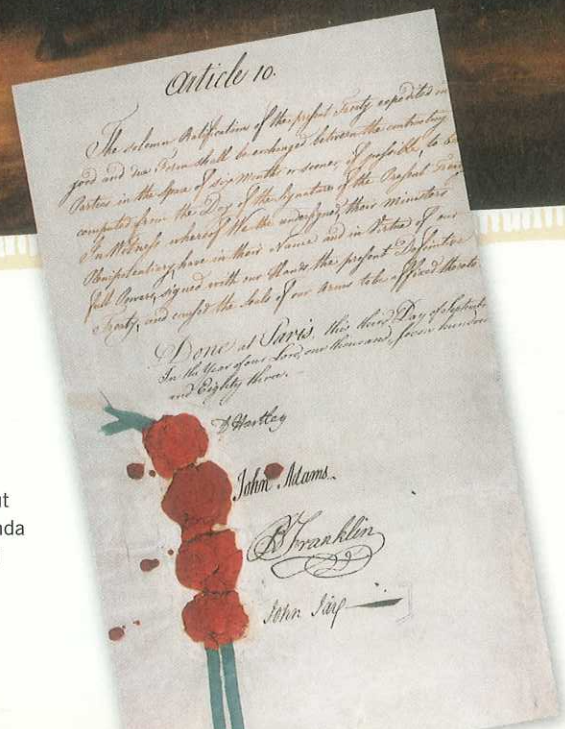 Article 10.
The solemn Ratification of the present Treaty expedited in
good and due Form shall be exchanged between the contracting
Parties in the Space of six Months or sooner if possible, to be
computed from the Day of the Signature of the Present Treaty
In Witness whereof We the undersigned, their Ministers
Plenipotentiary, have in their Name and in Virtue of our
full Powers, signed with our Hands the present Definitive
Treaty, and caused the Seals of our Arms to be affixed thereto
Done at Paris, this third Day of Septem
In the Year of our Lord, one thousand, seven hundred
and Eighty three.
D Hartley
John Adams.
B Franklin
John Jay
ut
nda